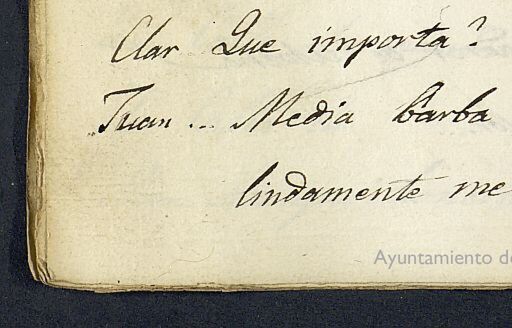 Clar Que importa?
Juan... Media barba
lindamente me
Ayuntamiento de